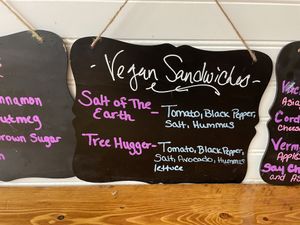 nnamon
utmeg
rown Sugar
- Vegan Sandwiches -
Salt of The
Earth - Tomato, Black Pepper,
Salt, Hummus
Tree Hugger - Tomato, Black Pepper,
Salt, Avocado, Hummus
lettuce
Asia
Cord
Cheese
Verm
Apple
Say Ch
and As